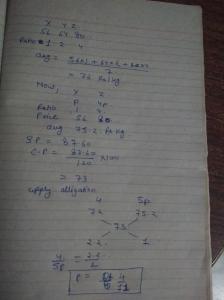 X Y Z
56 64 80
Ratio 1 2 4
avg = 56×1+64×2+80×4 / 7
= 72 Rs/kg
Now, X Z
P 4P
Ratio 1 4
Price 56 80
avg 75.2 Rs/kg
S.P = 87.60
C.P = 87.60 / 120 × 100
= 73
apply alligation
4 5p
72 75.2
73
2.2 1
4/5p = 2.2/1
P = 4/11